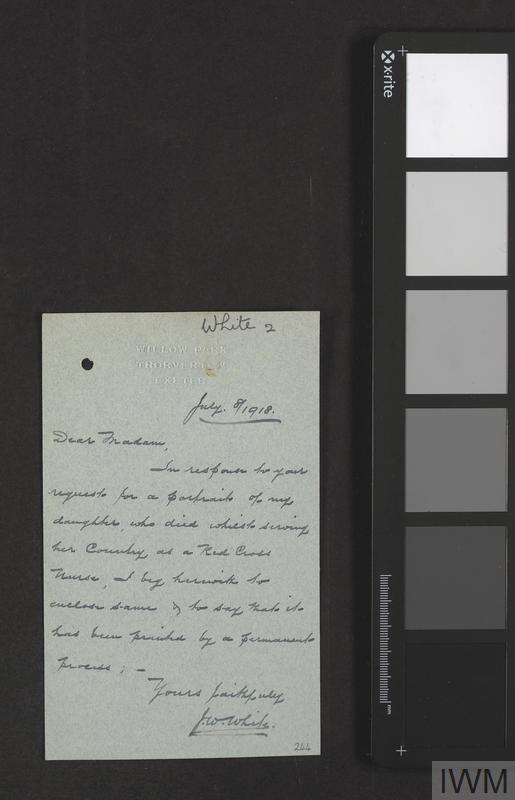 White 2
WILLOW PARK
THORVERTON
EXETER
July. 8/1918.
Dear Madam,
In response to your
request for a portrait of my
daughter, who died whilst serving
her Country, as a Red Cross
Nurse, I beg herewith to
enclose same & to say that it
has been printed by a permanent
process; –
Yours faithfully
J.W. White.
244
x-rite
mm
IWM